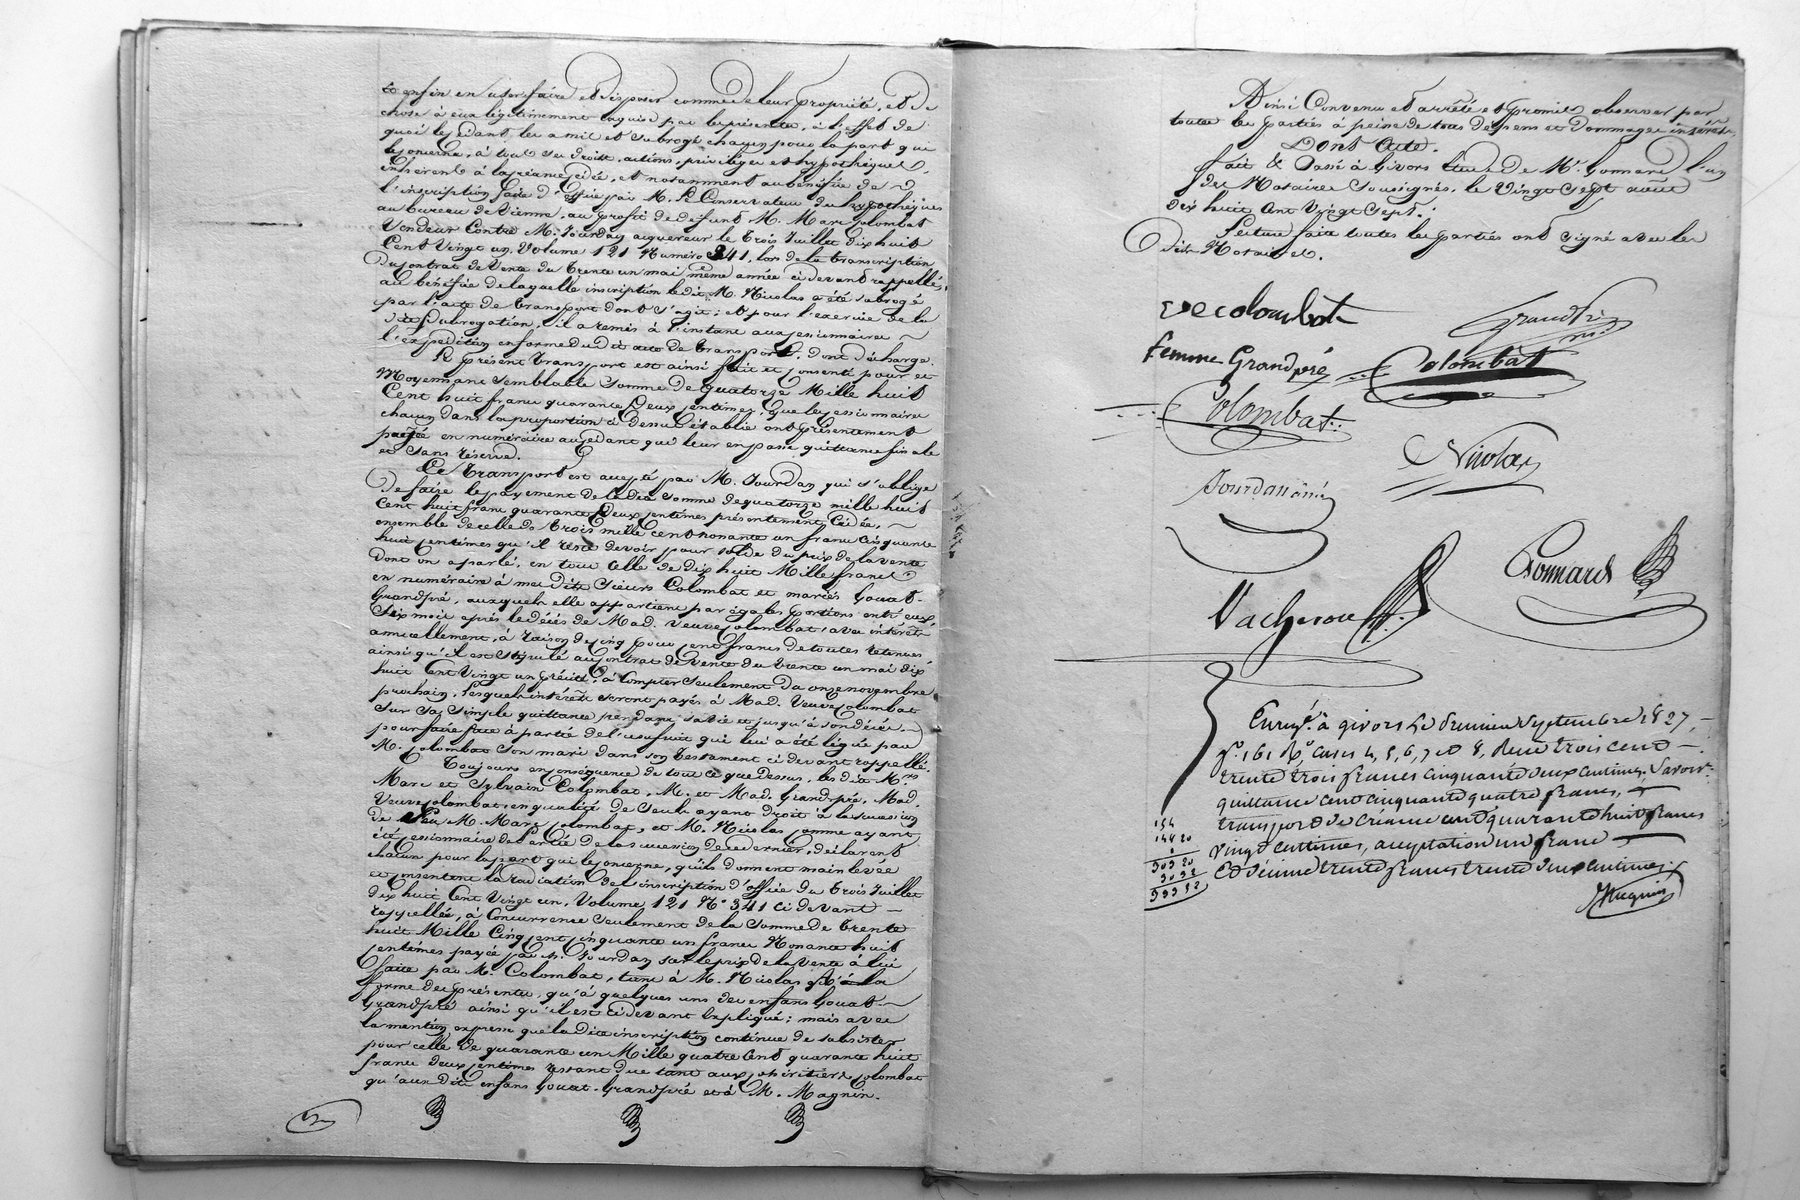 et enfin en user faire et disposer comme de leur propriété, et de
chose à eux légitimement acquise par les présentes, à l'effet de
quoi les cédant les a mis et subrogé chacun pour la part qui
les concerne, à tout ses droits, actions, privilèges et hypothèques
inhérents à la créance cédée, et notamment au bénéfice de
l'inscription faite d'office par M. le Conservateur des hypothèques
au bureau de Vienne, au profit de defunt M. Marc Colombat
Vendeur Contre M. Jourdan acquereur le trois Juillet dix huit
Cent Vingt un, Volume 121 Numéro 341, lors de la transcription
du contrat de Vente du trente un mai même année ci devant rappellé,
au bénéfice de laquelle inscription ledit M. Nicolas a été subrogé
par l'acte de transport dont s'agit; et pour l'exercice de la
dite Subrogation, il a remis à l'instant aux cessionnaires
l'expédition en forme dudit acte de transport, dont décharge.
Le présent transport est ainsi fait et consenti pour et
Moyennant semblable somme de quatorze Mille huit
Cent huit francs quarante Deux centimes, que les cessionnaires
chacun dans la proportion ci dessus établie ont présentement
payée en numéraire au cédant qui leur en passe quittance finale
et sans réserve.
Ce transport est accepté par M. Jourdan qui s'oblige
de faire le payement de ladite somme de quatorze mille huit
Cent huit francs quarante Deux centimes présentement Cédée,
ensemble de celle de trois mille cent nonante un francs cinquante
huit centimes qu'il reste devoir pour solde du prix de la vente
dont on a parlé, en tout celle de dix huit Mille francs
en numéraire à mes dits Sieurs Colombat et mariés Gouat-
Grandpré, auxquels elle appartient par égales portions entr'eux,
Six mois après le décès de Mad. Veuve Colombat, avec intérêts
annuellement, à raison de cinq pour cent francs de toutes retenues
ainsi qu'il est stipulé au contrat de vente du trente un mai dix
huit Cent Vingt un précité, à Compter seulement du onze novembre
prochain, lesquels intérêts seront payés à Mad. Veuve Colombat
sur sa simple quittance pendant sa vie et jusqu'à son décès
pour faire face à partie de l'usufruit qui lui a été légué par
M. Colombat Son mari dans son testament ci devant rappellé.
Toujours en conséquence de tout ce que Dessus, les dits Mrs
Marc et Sylvain Colombat, M. et Mad. Grandpré, Mad.
Veuve Colombat, en qualité de Seuls ayant droit à la succession
de Feu M. Marc Colombat, et M. Nicolas comme ayant
été cessionnaire de partie de la succession de ce dernier, déclarent
chacun pour la part qui le concerne, qu'ils donnent main levée
et consentent la radiation de l'inscription d'office du trois Juillet
dix huit Cent Vingt un, Volume 121 N° 341 ci devant
rappellée, à Concurrence seulement de la Somme de trente
huit Mille Cinq cent cinquante un francs Nonante huit
centimes payée par M. Jourdan sur le prix de la vente à lui
faite par M. Colombat, tant à M. Nicolas à la
forme des présentes, qu'à quelques uns des enfans Gouat-
Grandpré ainsi qu'il est ci devant Expliqué; mais avec
la mention expresse que la dite inscription continue de subsister
pour celle de quarante un Mille quatre Cent quarante huit
francs deux centimes restant due tant aux cohéritiers Colombat
qu'aux Dits enfans Gouat-Grandpré et à M. Magnin.
Ainsi Convenu et arrêté et promis observer par
toutes les parties à peine de tous dépens et Dommages intérêts.
Dont Acte.
Fait & Passé à Givors Etude de Me Gonnard l'un
des Notaires Soussignés, le Vingt Sept aout
dix huit Cent Vingt Sept.
Lecture faite toutes les parties ont Signé avec les
dits Notaires.
vve colombat
Grandpré
femme Grandpré
Colombat
Colombat
Nicolas
Jourdan ainé
Gonnard
Vacheron
Enregé. à givors Le premier Septembre 1827,
fo. 161 Ro. cases 4, 5, 6, 7 et 8, Reçu trois cent
trente trois francs cinquante deux centimes. Savoir
quittance cent cinquante quatre francs,
transport de Créance cent quarante huit francs
vingt centimes, acceptation un franc
Et dixième trente francs trente deux centimes.
154
148 20
1
303 20
30 32
333 52